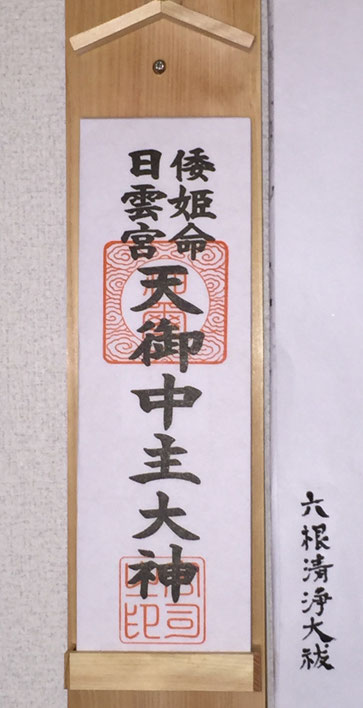 倭姫命
日雲宮
天御中主大神
六根清浄大祓